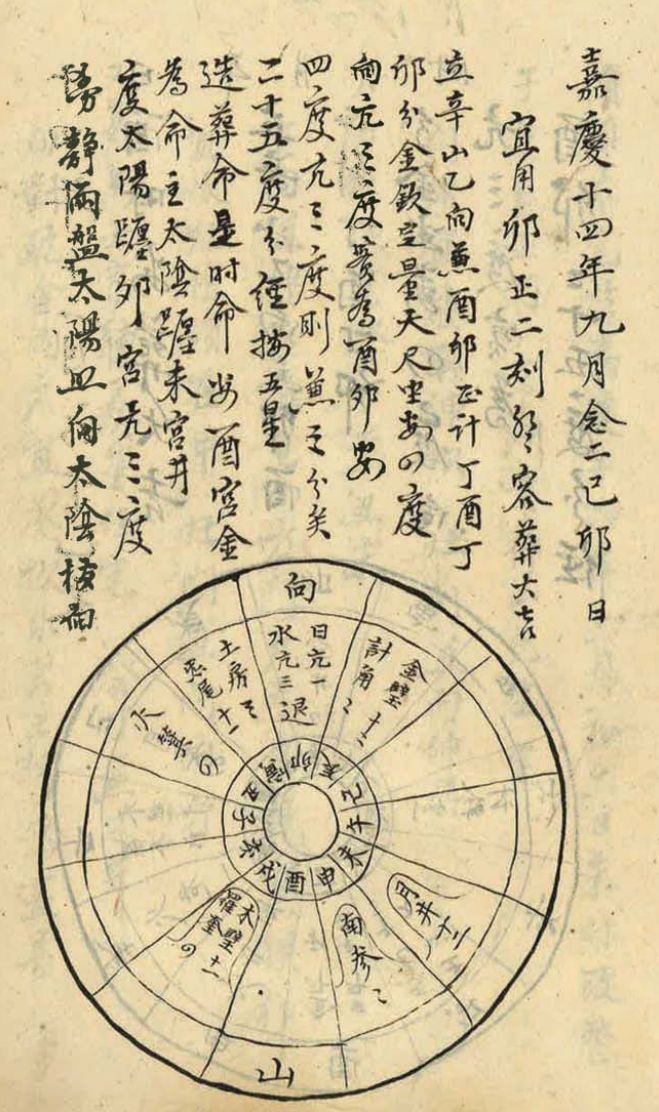 嘉慶十四年九月念二己卯日
宜用卯正二刻 容葬大吉
立辛山乙向兼酉卯正計丁酉丁
卯分金欽定量天尺坐 四度
向亢三度實為酉卯 
四度亢三度則兼三分矣
二十五度分經按五星
造葬命是时命 酉宮金
為命主太陰躔未宮井
度太陽躔卯宮亢三度
静兩盤太陽 向太陰 向
向
金壁十
計角
日亢一
水亢三退
土房
尾十一
火箕四
卯
辰
巳
午
未
申
酉
戌
亥
子
丑
寅
月井十二
南参
木壁十一
羅奎四
山